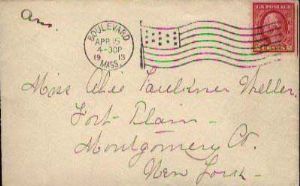 Ans
BOULEVARD
APR 15
4-30P
1913
MASS.
Miss Abie Faulkner Weller
Fort Plain
Montgomery Co.
New York